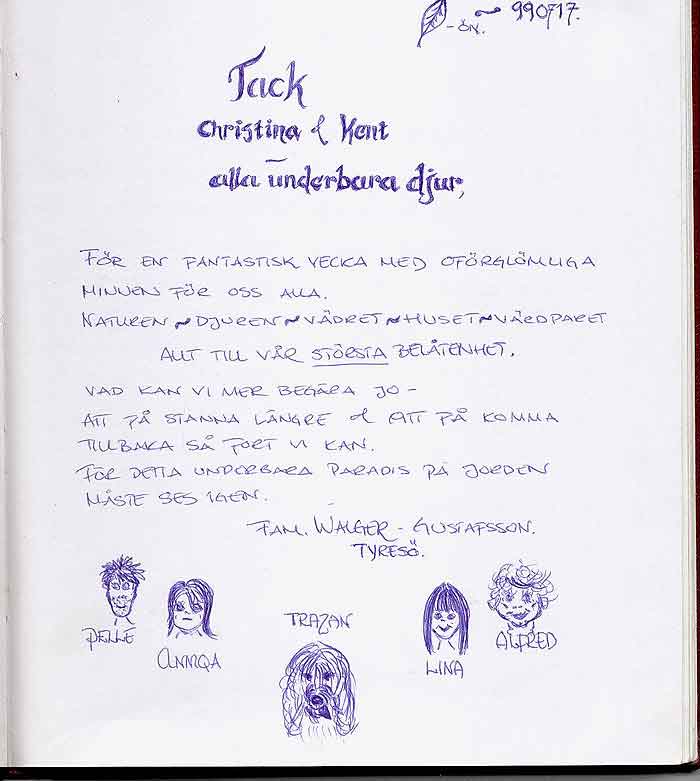 -ÖN. ~ 990717.
Tack
Christina & Kent
alla underbara djur,
FÖR EN FANTASTISK VECKA MED OFÖRGLÖMLIGA
MINNEN FÖR OSS ALLA.
NATUREN ~ DJUREN ~ VÄDRET ~ HUSET ~ VÄRDPARET
ALLT TILL VÅR STÖRSTA BELÅTENHET.
VAD KAN VI MER BEGÄRA JO -
ATT FÅ STANNA LÄNGRE & ATT FÅ KOMMA
TILLBAKA SÅ FORT VI KAN.
FÖR DETTA UNDERBARA PARADIS PÅ JORDEN
MÅSTE SES IGEN.
FAM. WALGER - GUSTAFSSON.
TYRESÖ.
PELLE
ANNIQA
TRAZAN
LINA
ALFRED